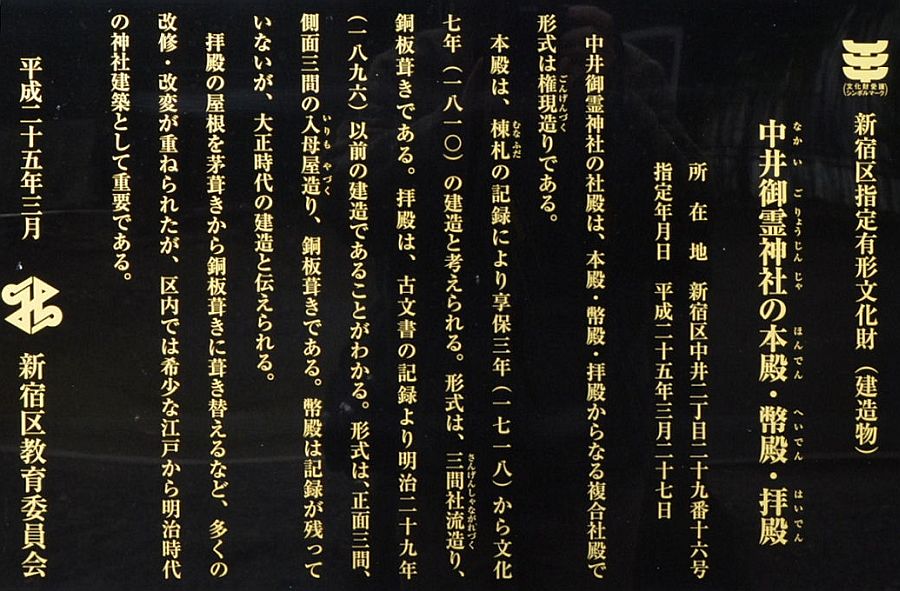 (文化財愛護シンボルマーク)
新宿区指定有形文化財(建造物)
中井御霊神社の本殿・幣殿・拝殿
なかいごりょうじんじゃ ほんでん へいでん はいでん
所在地 新宿区中井二丁目二十九番十六号
指定年月日 平成二十五年三月二十七日
中井御霊神社の社殿は、本殿・幣殿・拝殿からなる複合社殿で
形式は権現造りである。
ごんげんづく
本殿は、棟札の記録により享保三年(一七一八)から文化
むなふだ
七年(一八一〇)の建造と考えられる。形式は、三間社流造り、
さんげんしゃながれづく
銅板葺きである。拝殿は、古文書の記録より明治二十九年
(一八九六)以前の建造であることがわかる。形式は、正面三間、
側面三間の入母屋造り、銅板葺きである。幣殿は記録が残って
いりもやづく
いないが、大正時代の建造と伝えられる。
拝殿の屋根を茅葺きから銅板葺きに葺き替えるなど、多くの
改修・改変が重ねられたが、区内では希少な江戸から明治時代
の神社建築として重要である。
平成二十五年三月
新宿区教育委員会